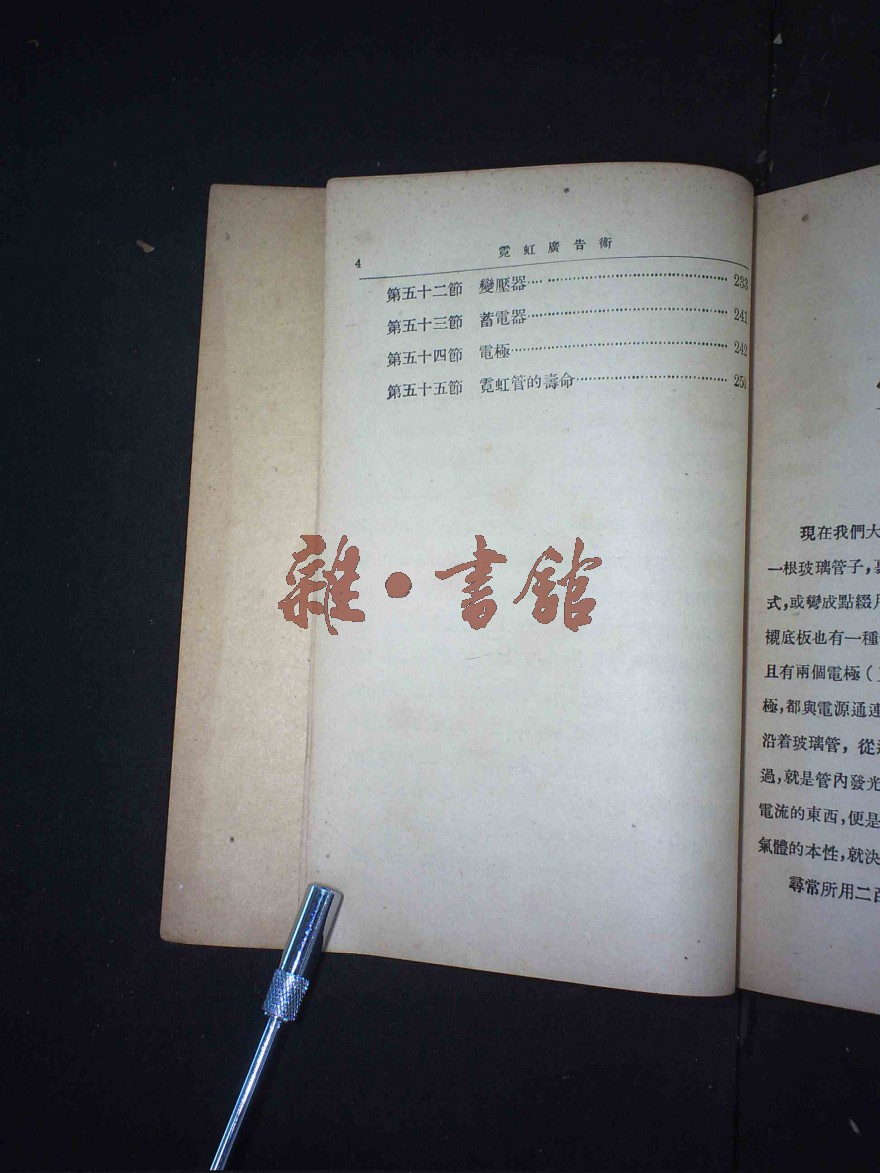 4
霓虹廣告術
第五十二節 變壓器………………………………… 233
第五十三節 蓄電器………………………………… 241
第五十四節 電極…………………………………… 242
第五十五節 霓虹管的壽命………………………… 250
雜·書館
現在我們大
一根玻璃管子,
式,或彎成點綴
襯底板也有一種
且有兩個電極(
極,都與電源通連
沿着玻璃管, 從
過,就是管內發光
電流的東西,便是
氣體的本性,就決
尋常所用二百